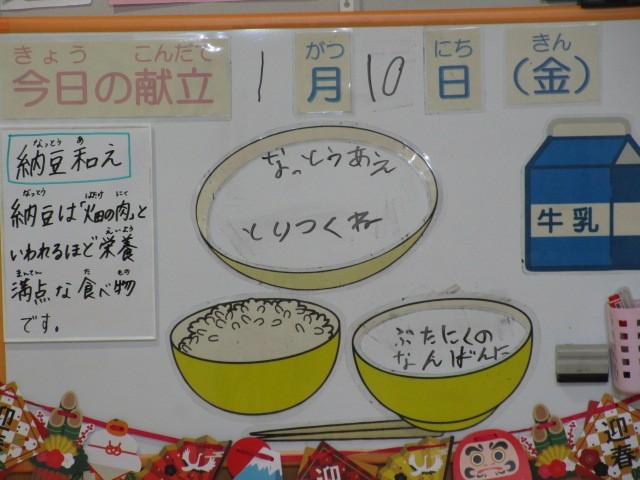 きょう こんだて
今日の献立
1
がつ
月
10
にち
日
きん
(金)
なっとう あ
納豆和え
なっとう はたけ にく
納豆は「畑の肉」と
いわれるほど栄養
えいよう
満点な食べ物
まんてん た もの
です。
なっとうあえ
とりつくね
ぶたにくの
なんばんに
牛乳
迎春
迎
迎春